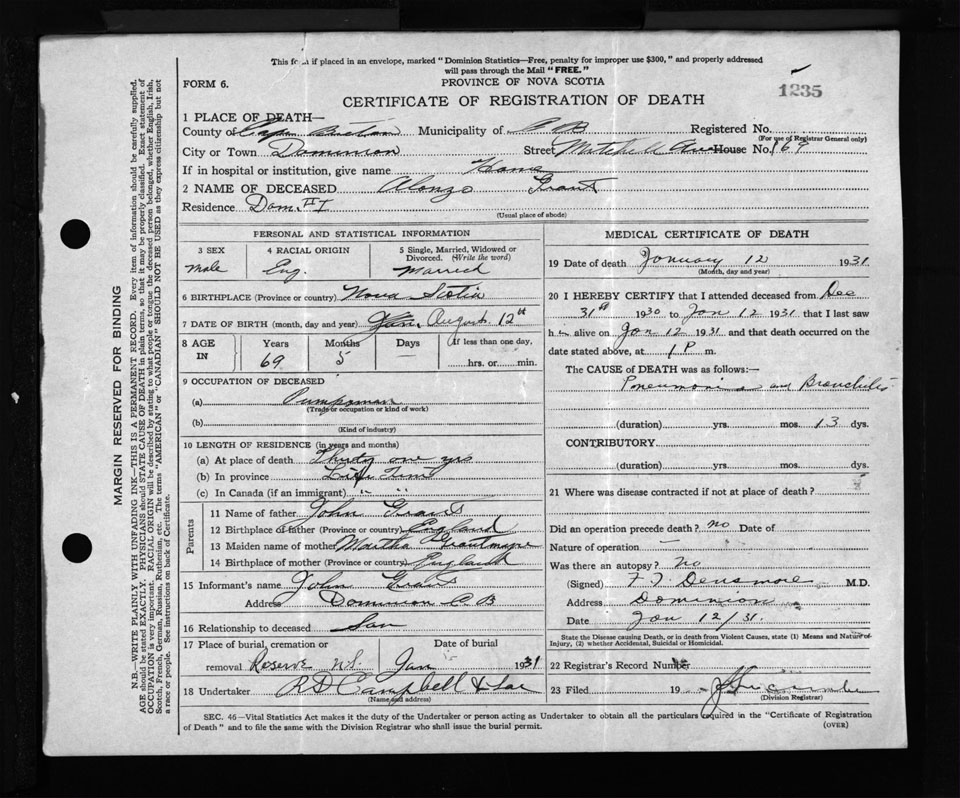 This fo m if placed in an envelope, marked "Dominion Statistics—Free, penalty for improper use $300," and properly addressed
will pass through the Mail "FREE."
FORM 6.
PROVINCE OF NOVA SCOTIA
1235
CERTIFICATE OF REGISTRATION OF DEATH
1 PLACE OF DEATH—
County of Cape Breton Municipality of C B Registered No.
(For use of Registrar General only)
City or Town Dominion Street Mitchell Ave House No. 169
If in hospital or institution, give name Home
2 NAME OF DECEASED Alonzo Grant
Residence Dom. # 1
(Usual place of abode)
PERSONAL AND STATISTICAL INFORMATION
3 SEX 4 RACIAL ORIGIN 5 Single, Married, Widowed or Divorced. (Write the word)
Male Eng. Married
6 BIRTHPLACE (Province or country) Nova Scotia
7 DATE OF BIRTH (month, day and year) August 12th
8 AGE IN Years Months Days If less than one day,
69 5 — hrs. or min.
9 OCCUPATION OF DECEASED
(a) Pumpman
(Trade or occupation or kind of work)
(b)
(Kind of industry)
10 LENGTH OF RESIDENCE (in years and months)
(a) At place of death Thirty one yrs
(b) In province Life Time
(c) In Canada (if an immigrant) " "
Parents
11 Name of father John Grant
12 Birthplace of father (Province or country) England
13 Maiden name of mother Martha
14 Birthplace of mother (Province or country) England
15 Informant's name John Grant
Address Dominion C B
16 Relationship to deceased Son
17 Place of burial, cremation or Date of burial
removal Reserve N.S. Jan 1931
18 Undertaker R D Campbell &
(Name and address)
MEDICAL CERTIFICATE OF DEATH
19 Date of death January 12 1931
(Month, day and year)
20 I HEREBY CERTIFY that I attended deceased from Dec
31st 1930 to Jan 12 1931 that I last saw
h im alive on Jan 12 1931 and that death occurred on the
date stated above, at 1 P m.
The CAUSE of DEATH was as follows:—
Pneumonia and Bronchitis
(duration) yrs. mos. 13 dys.
CONTRIBUTORY
(duration) yrs. mos. dys.
21 Where was disease contracted if not at place of death?
Did an operation precede death? no Date of
Nature of operation —
Was there an autopsy? No
(Signed) F. T. Densmore M.D.
Address Dominion
Date Jan 12/31.
State the Disease causing Death, or in death from Violent Causes, state (1) Means and Nature of
Injury, (2) whether Accidental, Suicidal or Homicidal.
22 Registrar's Record Number
23 Filed 19
(Division Registrar)
SEC. 46—Vital Statistics Act makes it the duty of the Undertaker or person acting as Undertaker to obtain all the particulars required in the "Certificate of Registration
of Death" and to file the same with the Division Registrar who shall issue the burial permit.
(OVER)
MARGIN RESERVED FOR BINDING
N.B.—WRITE PLAINLY WITH UNFADING INK—THIS IS A PERMANENT RECORD. Every item of information should be carefully supplied.
AGE should be stated EXACTLY. PHYSICIANS should STATE CAUSE OF DEATH in plain terms, so that it may be properly classified. Exact statement of
OCCUPATION is very important. RACIAL ORIGIN will be described by stating to what people or tongue the deceased person belonged, whether English, Irish,
Scotch, French, German, Russian, Ruthenian, etc. The terms "AMERICAN" or "CANADIAN" SHOULD NOT BE USED as they express citizenship but not
a race or people. See instructions on back of Certificate.